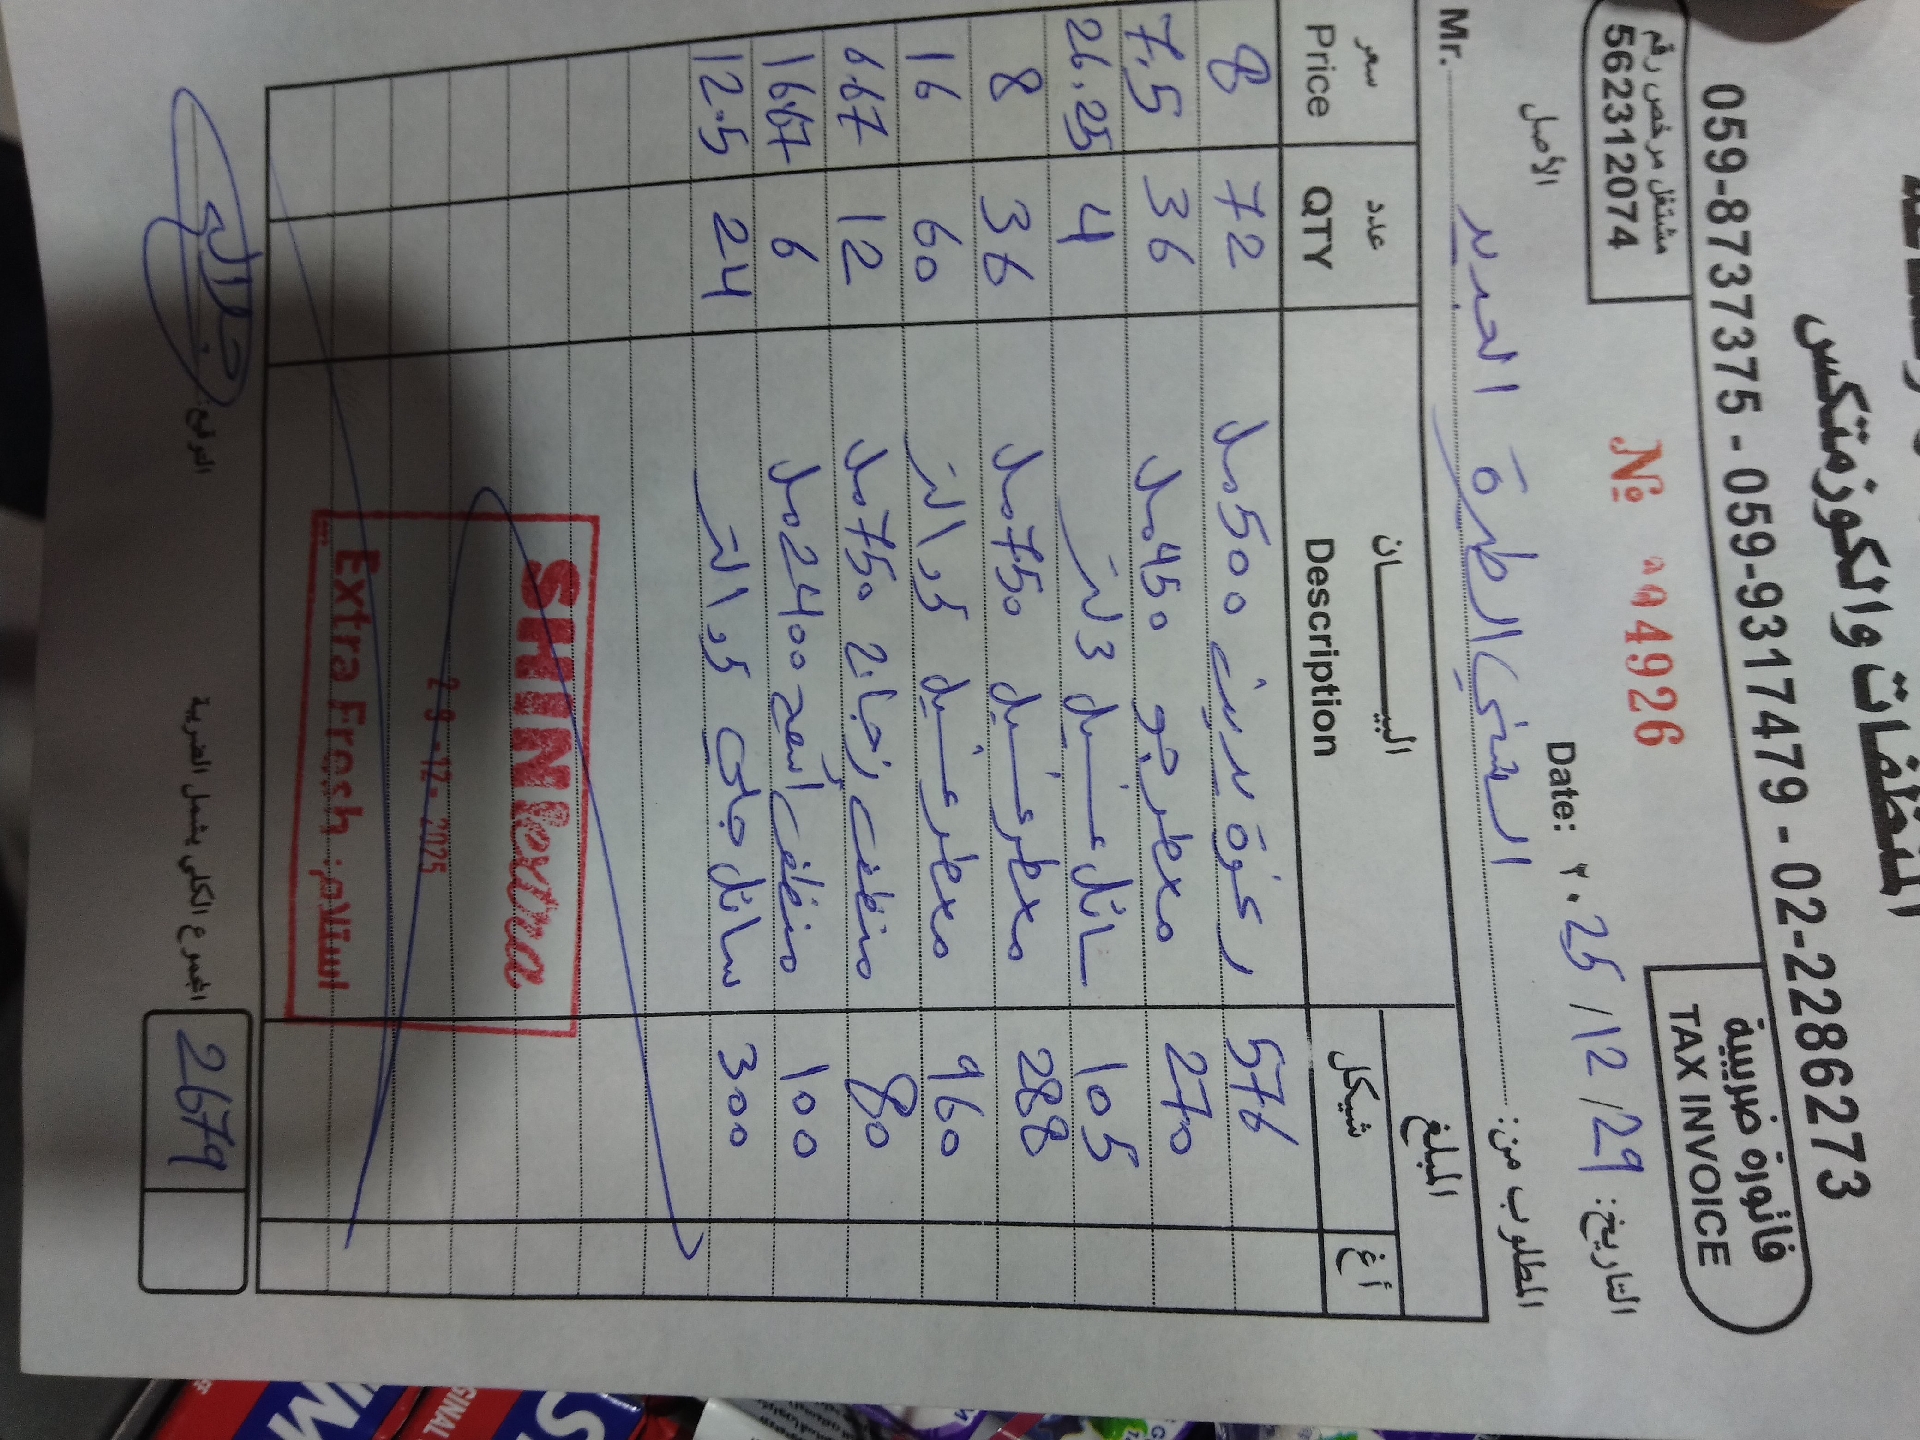 المنظفات والكوزمتكس
059-8737375 - 059-9317479 - 02-2286273
مشتغل مرخص رقم
562312074
فاتورة ضريبية
TAX INVOICE
№ 004926
الأصل
Date: ٢٠25/12/29 التاريخ:
Mr. الحديد المطلوب من:
سعر عدد البيـــــــان المبلغ
Price QTY Description شيكل أغ
8 72 رغوة يدين 500 مل 576
7.5 36 معطر جو 450 مل 270
26.25 4 سائل غسيل 3 لتر 105
8 36 معطر غسيل 750 مل 288
16 60 معطر غسيل 960
6.67 12 منظف زجاج 750 مل 80
16.67 6 منظف 2400 مل 100
12.5 24 سائل جلي 300
SHINextra
29-12-2025
Extra Fresh استلام:
التوقيع: المجموع الكلي يشمل الضريبة 2679